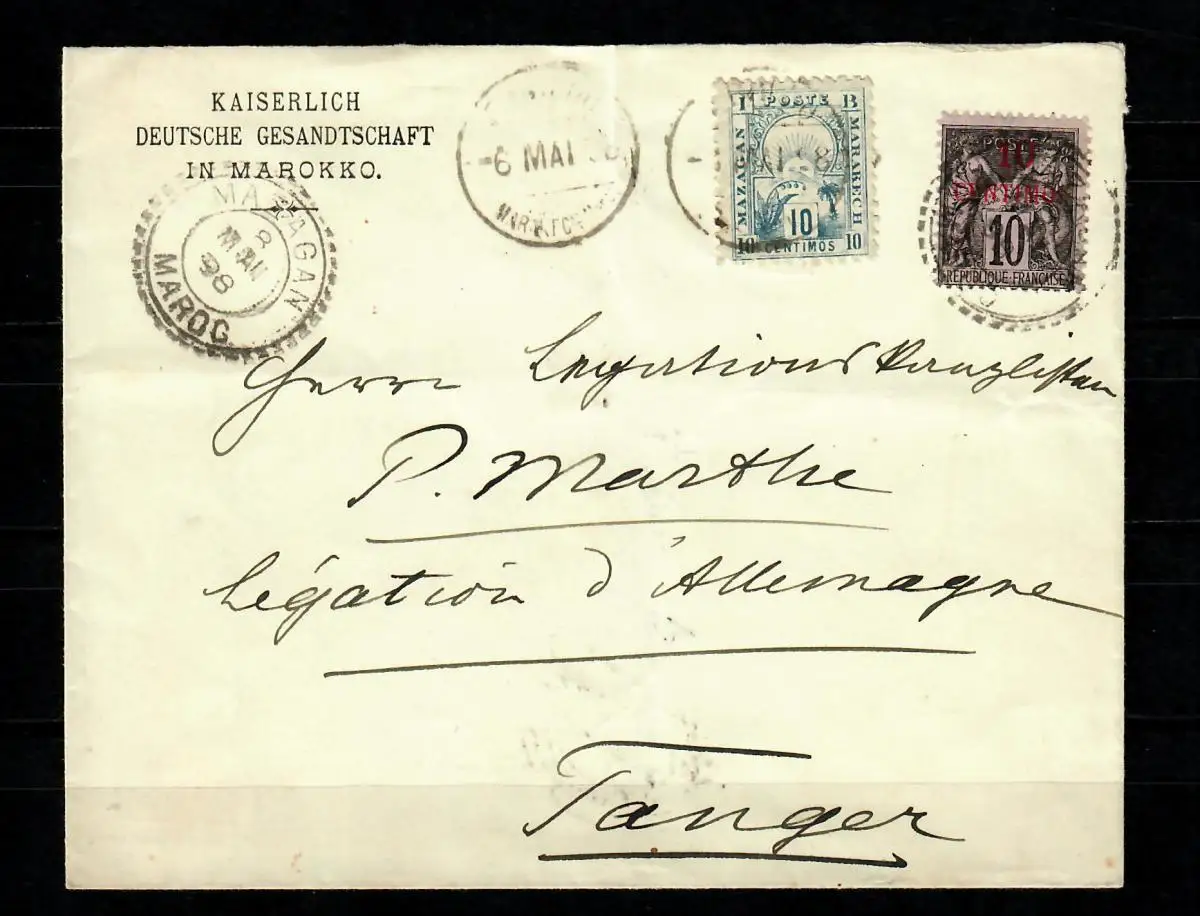 KAISERLICH
DEUTSCHE GESANDTSCHAFT
IN MAROKKO.
MAZAGAN
8
MAI
98
MAROC
-6 MAI 98
POSTE
B
MAZAGAN
MARAKECH
10
10 CENTIMOS 10
POSTE
10
CENTIMOS
10
RÉPUBLIQUE FRANÇAISE
Herrn Legationskanzlisten
P. Marthe
Légation d'Allemagne
Tanger